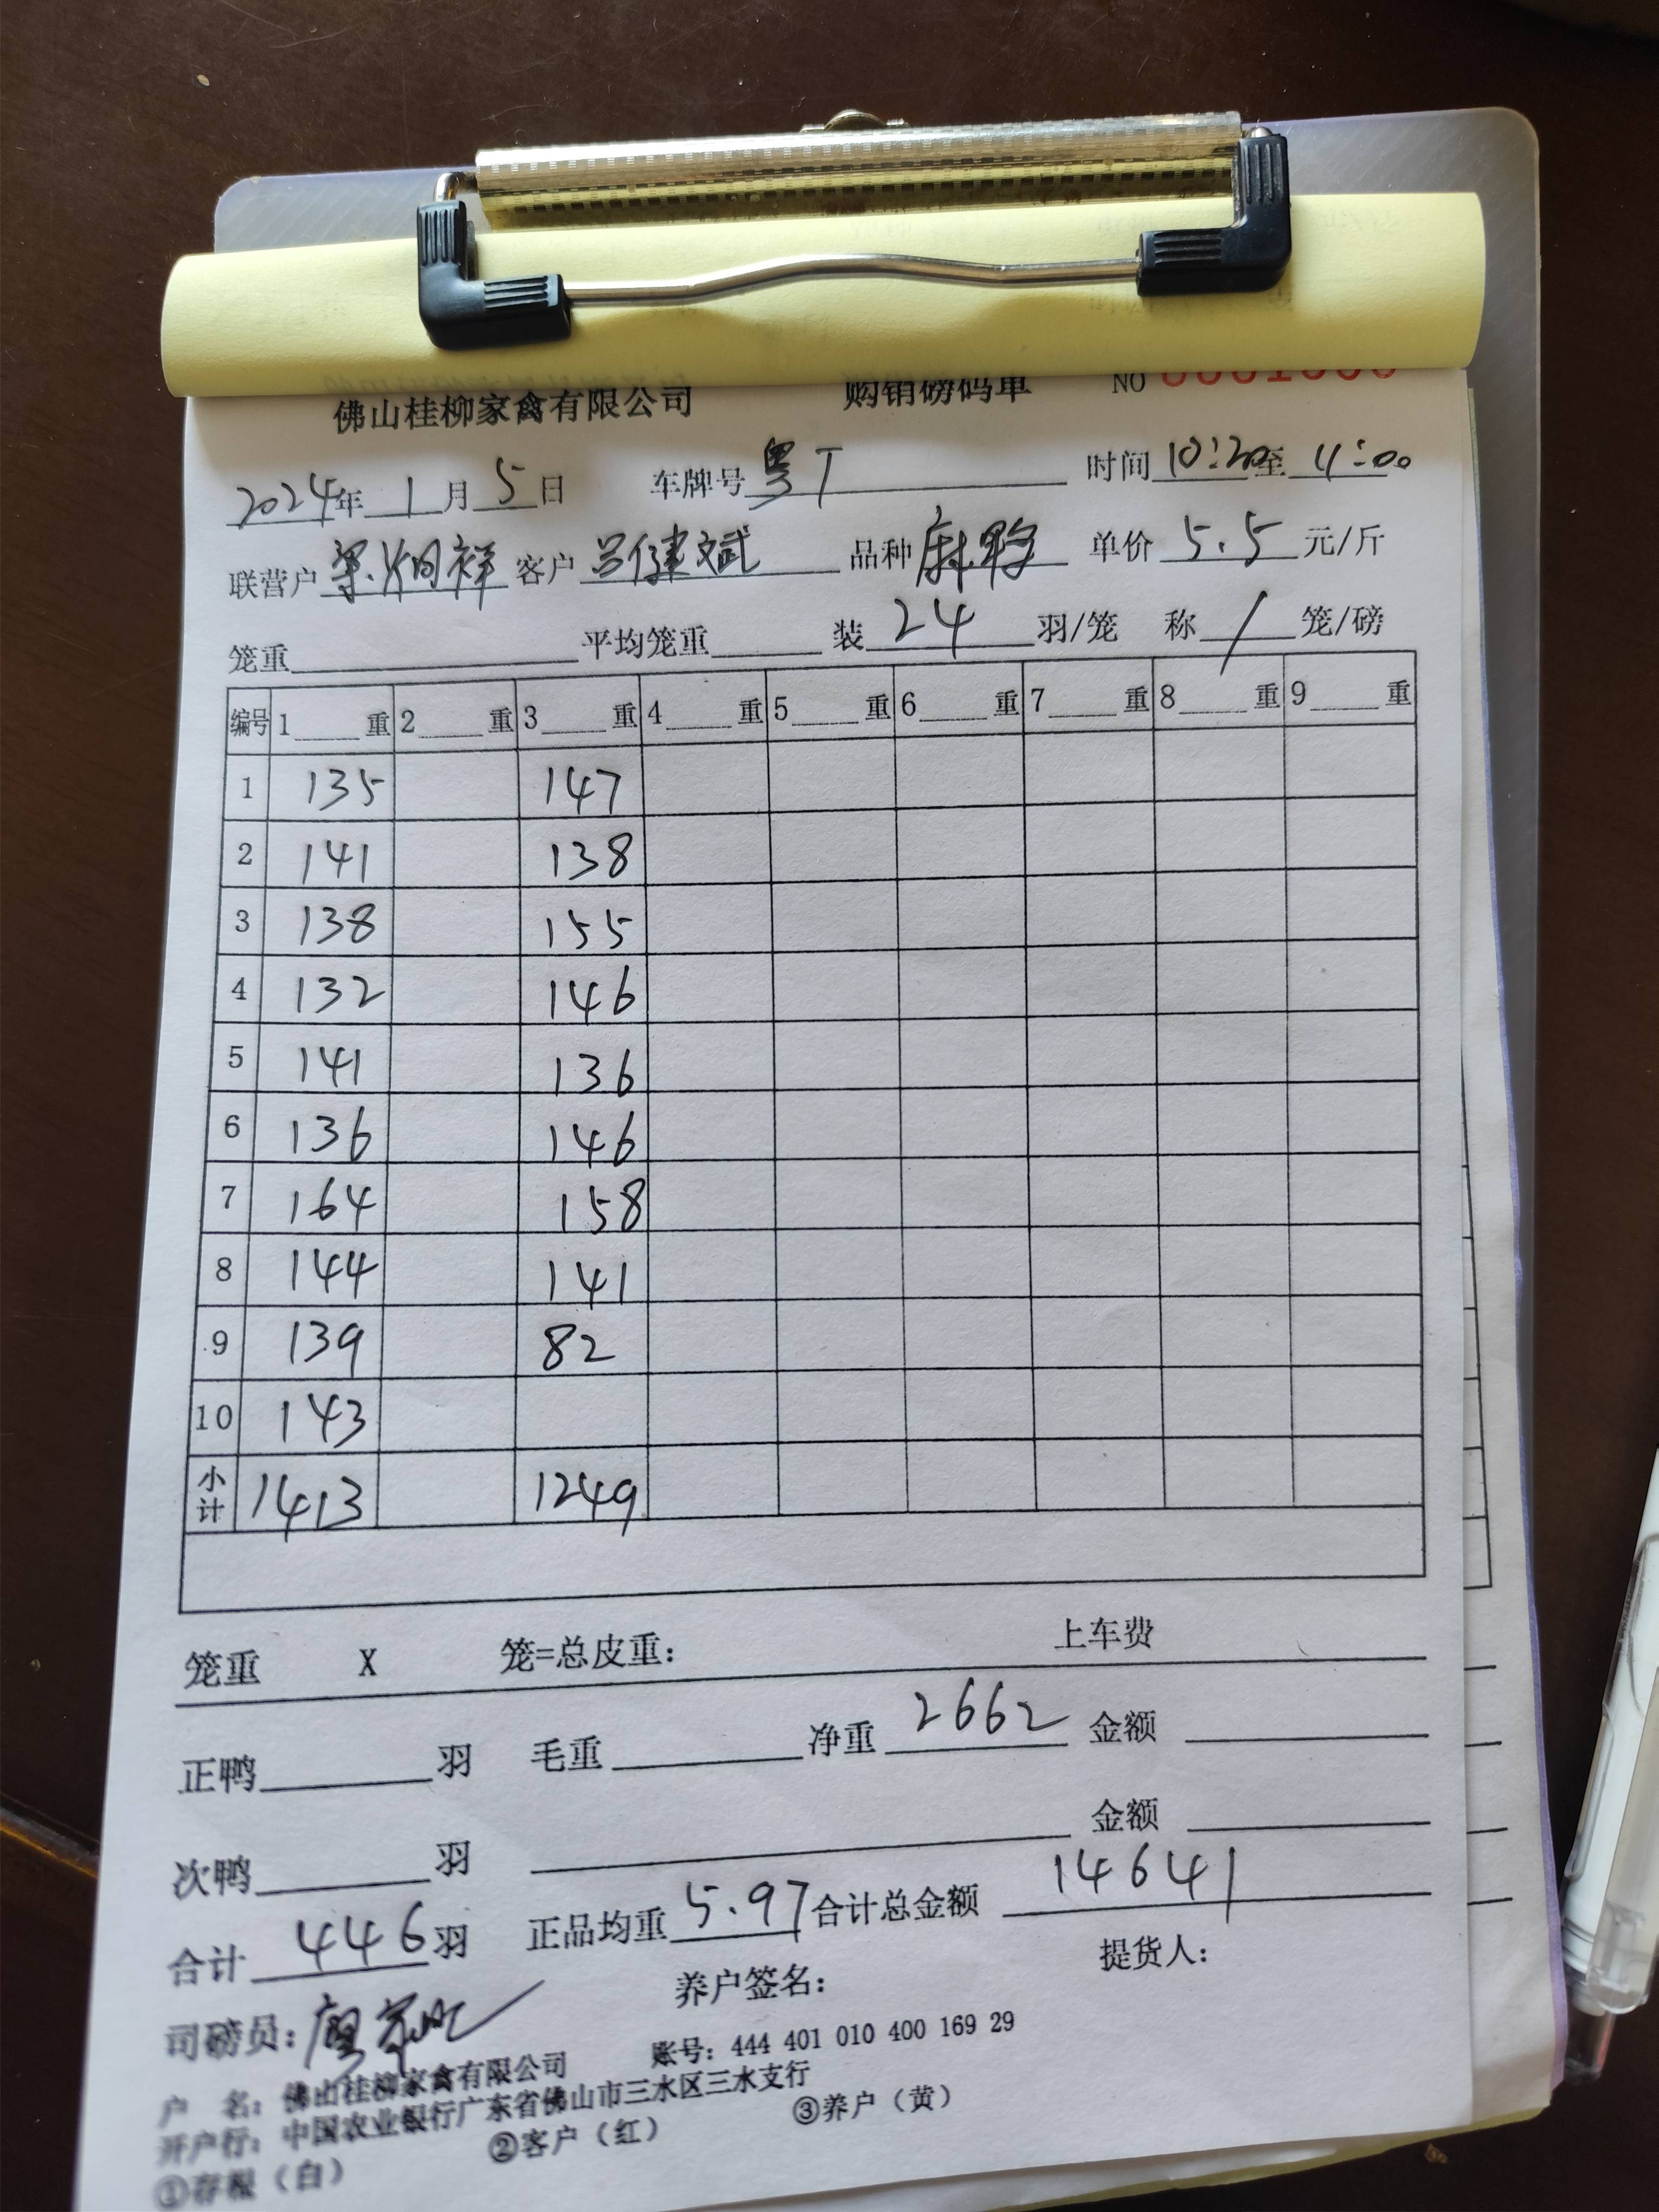 佛山桂柳家禽有限公司 购销磅码单 NO
2024年 1月 5日 车牌号 粤T 时间 10:20至 11:00
联营户 梁炯祥 客户 吕健斌 品种 麻鸭 单价 5.5 元/斤
笼重 平均笼重 装 24 羽/笼 称 / 笼/磅
编号 1 重 2 重 3 重 4 重 5 重 6 重 7 重 8 重 9 重
1 135 147
2 141 138
3 138 155
4 132 146
5 141 136
6 136 146
7 164 158
8 144 141
9 139 82
10 143
小计 1413 1249
笼重 X 笼=总皮重: 上车费
正鸭 羽 毛重 净重 2662 金额
次鸭 羽 金额
合计 446羽 正品均重 5.97 合计总金额 14641
司磅员: 养户签名: 提货人:
户 名: 佛山桂柳家禽有限公司 账号: 444 401 010 400 169 29
开户行: 中国农业银行广东省佛山市三水区三水支行
①存根（白） ②客户（红） ③养户（黄）